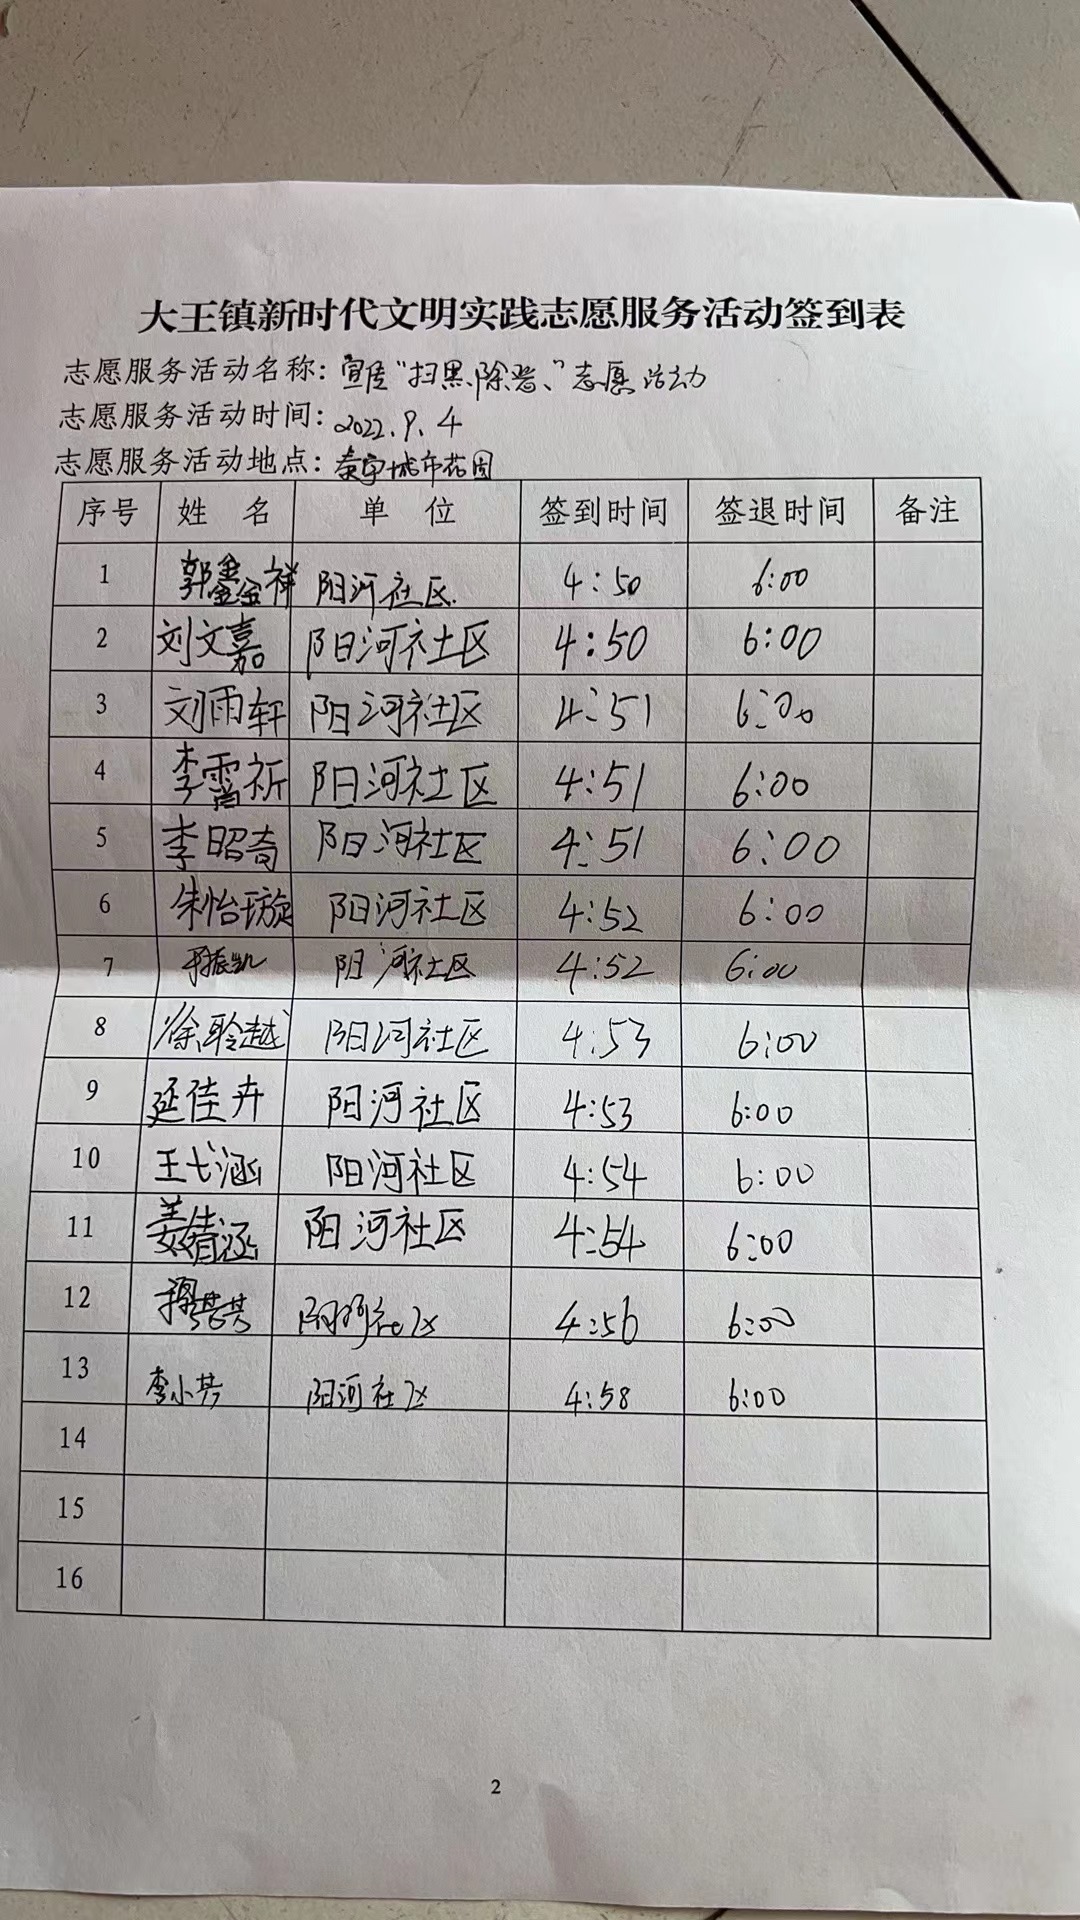 大王镇新时代文明实践志愿服务活动签到表
志愿服务活动名称：宣传“扫黑、除恶、”志愿活动
志愿服务活动时间：2022.9.4
志愿服务活动地点：泰宇城市花园
序号 姓 名 单 位 签到时间 签退时间 备注
1 郭鑫祥 阳河社区 4:50 6:00
2 刘文嘉 阳河社区 4:50 6:00
3 刘雨轩 阳河社区 4:51 6:00
4 李霄祈 阳河社区 4:51 6:00
5 李昭奇 阳河社区 4:51 6:00
6 朱怡璇 阳河社区 4:52 6:00
7 阳河社区 4:52 6:00
8 徐聆越 阳河社区 4:53 6:00
9 延佳卉 阳河社区 4:53 6:00
10 王弋涵 阳河社区 4:54 6:00
11 姜婧涵 阳河社区 4:54 6:00
12 阳河社区 4:56 6:00
13 李小芳 阳河社区 4:58 6:00
14
15
16
2